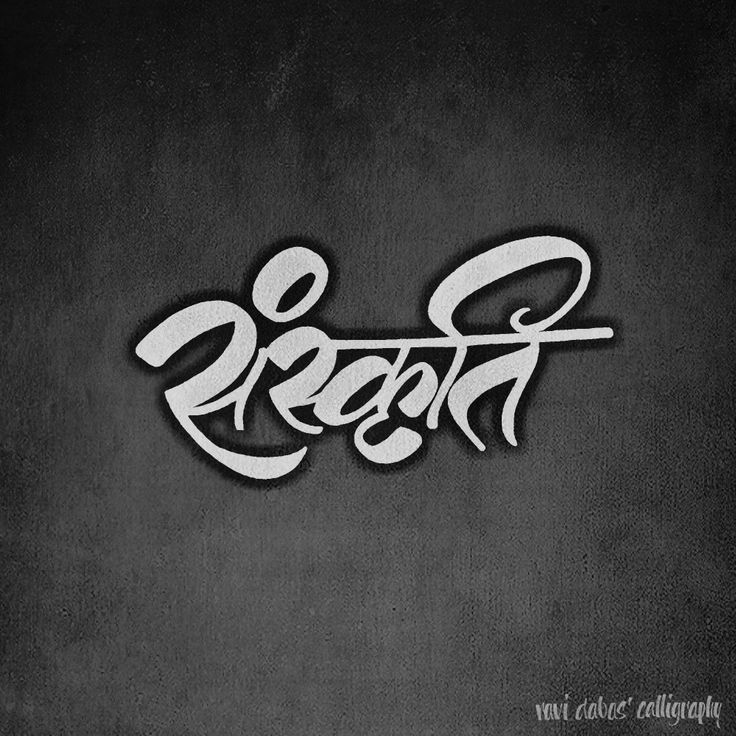 संस्कृति
ravi dabas' calligraphy